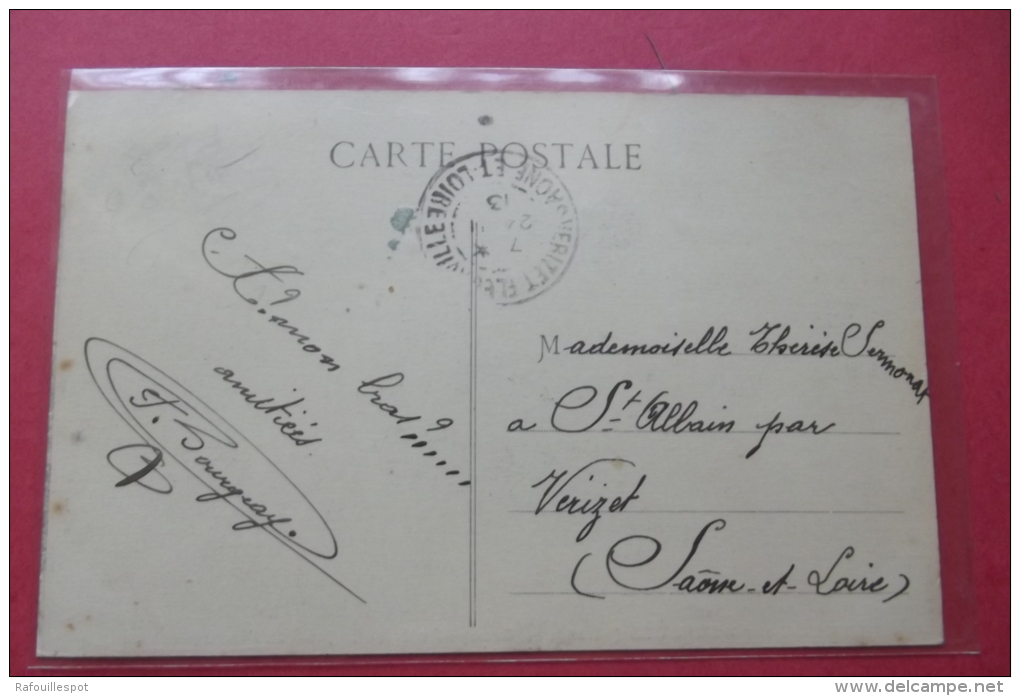 CARTE POSTALE
VERIZET FLEURVILLE
SAONE-ET-LOIRE
7
24
13
mon bras ??.....
amitiées.
F. Bourgeay.
Mademoiselle Thérèse Sermonat
a St Albain par
Verizet
(Saône-et-Loire)
Rafouillespot
www.delcampe.net